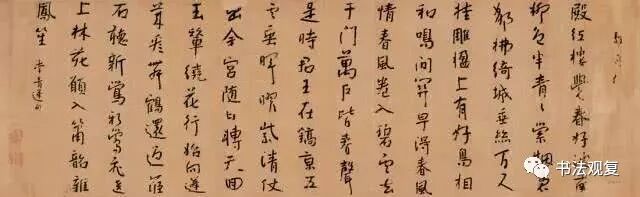 殿紅樓覺春好池南
柳色半青々縈烟裊
娜拂綺城垂絲百尺
挂雕楹上有好鳥相
和鳴間關早得春風
情春風卷入碧雲去
千門萬戶皆春聲
是時君王在鎬京五
雲垂暉曜紫清仗
出金宮隨日轉天回
玉輦繞花行始向蓬
萊看舞鶴還過茝
若聽新鶯新鶯飛繞
上林苑願入簫韶雜
鳳笙 李青蓮句
书法观复